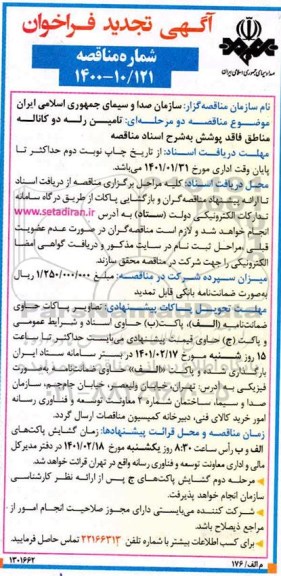 آگهی تجدید فراخوان
شماره مناقصه
۱۴۰۰-۱۰/۱۲۱
صدا و سیمای جمهوری اسلامی ایران
نام سازمان مناقصه‌گزار: سازمان صدا و سیمای جمهوری اسلامی ایران
موضوع مناقصه دو مرحله‌ای: تامین رله دو کاناله
مناطق فاقد پوشش به‌شرح اسناد مناقصه
مهلت دریافت اسناد: از تاریخ چاپ نوبت دوم حداکثر تا
پایان وقت اداری مورخ ۱۴۰۱/۰۱/۳۱ می‌باشد.
محل دریافت اسناد: کلیه مراحل برگزاری مناقصه از دریافت اسناد
تا ارائه پیشنهاد مناقصه‌گران و بازگشایی پاکات از طریق درگاه سامانه
تدارکات الکترونیکی دولت (ستاد) به آدرس www.setadiran.ir
انجام خواهد شد و لازم است مناقصه‌گران در صورت عدم عضویت
قبلی مراحل ثبت نام در سایت مذکور و دریافت گواهی امضا
الکترونیکی را جهت شرکت در مناقصه محقق سازند.
میزان سپرده شرکت در مناقصه: مبلغ ۱/۲۵۰/۰۰۰/۰۰۰ ریال
به‌صورت ضمانت‌نامه بانکی قابل تمدید
مهلت و محل تحویل پاکات پیشنهادی: تصاویر پاکات حاوی
ضمانت‌نامه (الف)، پاکت(ب) حاوی اسناد و شرایط عمومی
و پاکت (ج) حاوی قیمت پیشنهادی می‌بایست حداکثر تا ساعت
۱۵ روز شنبه مورخ ۱۴۰۱/۰۲/۱۷ در بستر سامانه ستاد ایران
بارگذاری شده و پاکت «الف» حاوی ضمانت‌نامه به‌صورت
فیزیکی به آدرس: تهران، خیابان ولیعصر، خیابان جام‌جم، سازمان
صدا و سیما، ساختمان شماره ۲ معاونت توسعه و فناوری رسانه
امور خرید کالای فنی، دبیرخانه کمیسیون مناقصات ارسال گردد.
زمان مناقصه و محل قرائت پیشنهادها: زمان گشایش پاکت‌های
الف و ب رأس ساعت ۸:۳۰ روز یکشنبه مورخ ۱۴۰۱/۰۲/۱۸ در دفتر مدیرکل
مالی و اداری معاونت توسعه و فناوری رسانه واقع در تهران قرائت خواهد شد.
مرحله دوم گشایش پاکت‌های ج پس از ارائه نظر کارشناسی
سازمان انجام خواهد پذیرفت.
شرکت کننده می‌بایستی دارای مجوز صلاحیت انجام امور از
مراجع ذیصلاح باشد.
برای کسب اطلاعات بیشتر با شماره تلفن ۲۲۱۶۶۳۱۳ تماس حاصل فرمایید.
م الف/ ۱۷۶
۱۳۰۱۶۶۲